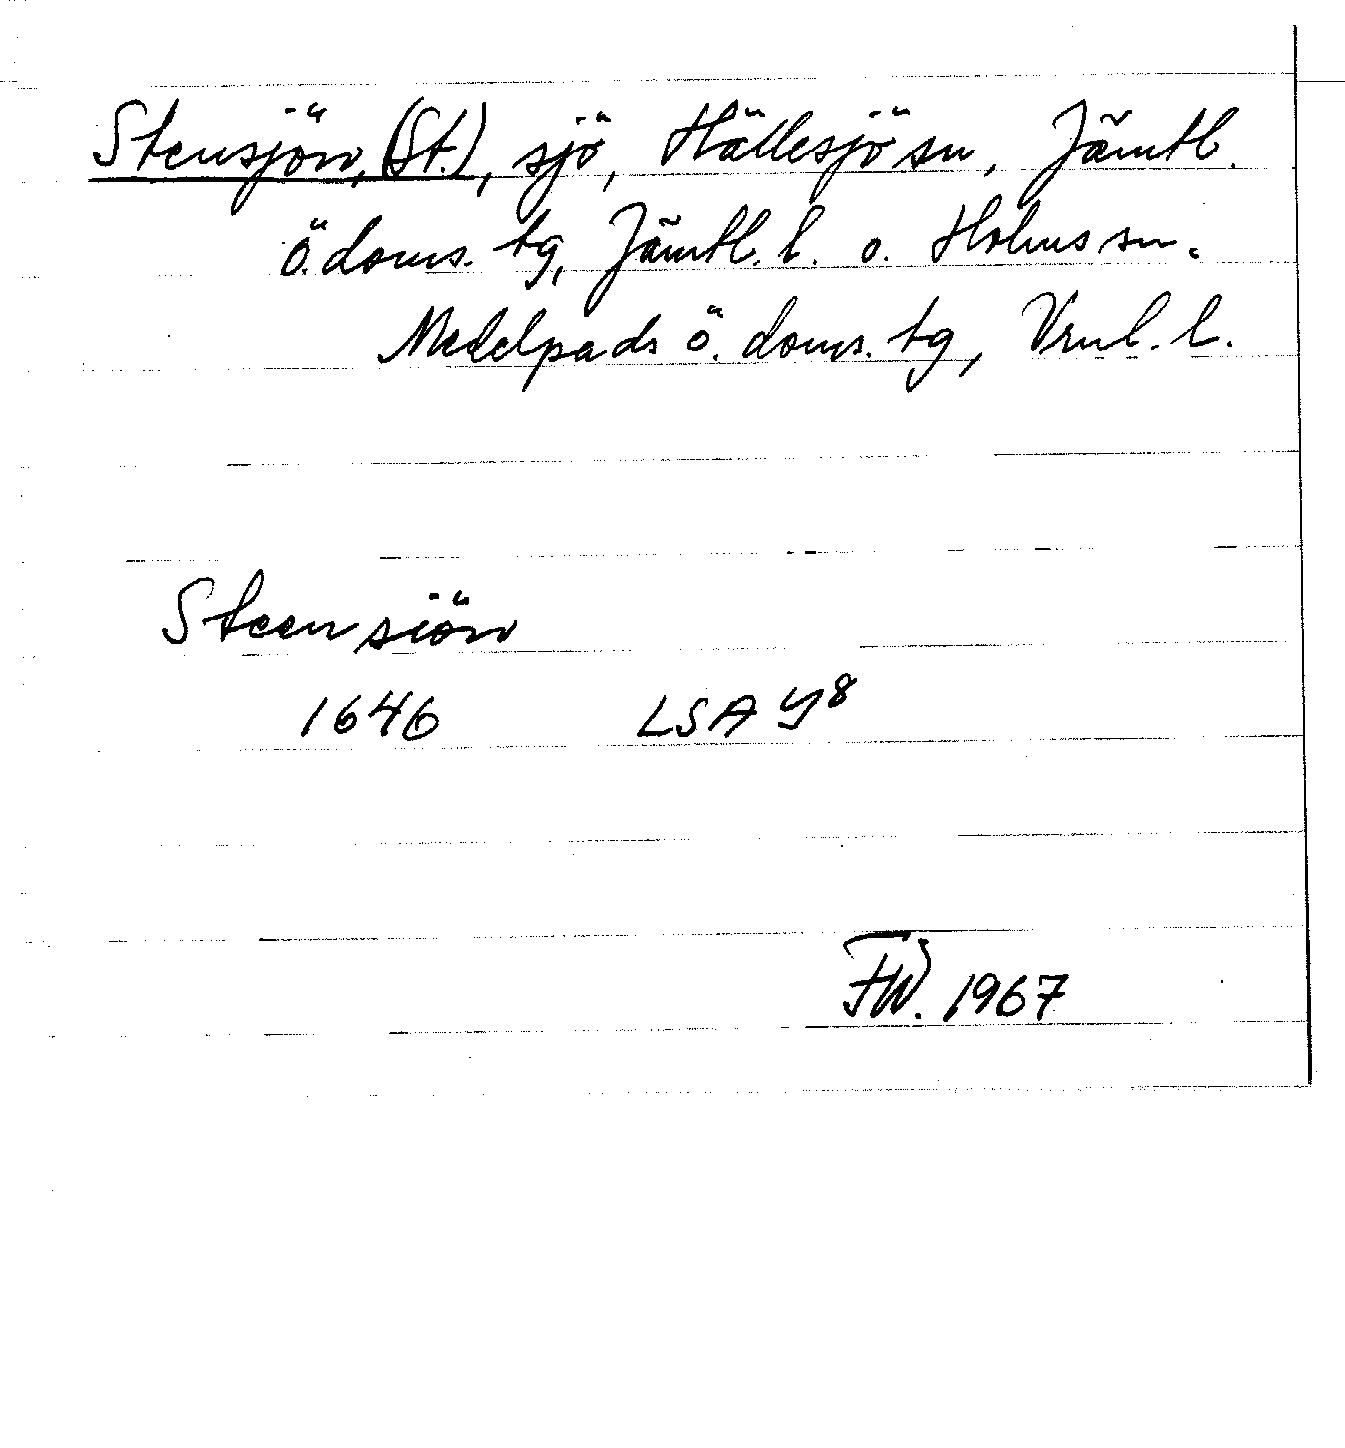 Stensjön, (St.), sjö, Hällesjö sn, Jämtl.
ö. doms. tg, Jämtl. l. o. Holms sn.
Medelpads ö. doms. tg, Vrnl. l.
Steensiön
1646 LSA Y8
FW. 1967